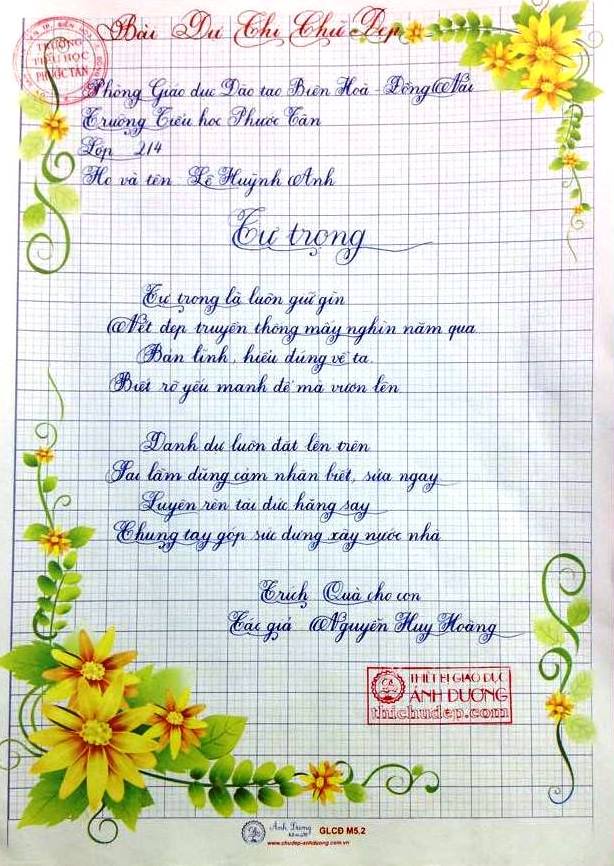 Bài Dự Thi Chữ Đẹp
TRƯỜNG
TIỂU HỌC
PHƯỚC TÂN
Phòng Giáo dục Đào tạo Biên Hoà - Đồng Nai
Trường Tiểu học Phước Tân
Lớp 2/4
Họ và tên Lê Huỳnh Anh
Tự trọng
Tự trọng là luôn giữ gìn
Nét đẹp truyền thống mấy nghìn năm qua
Bản lĩnh, hiểu đúng về ta.
Biết rõ yếu mạnh để mà vươn lên
Danh dự luôn đặt lên trên
Sai lầm dũng cảm nhận biết, sửa ngay
Luyện rèn tài đức hăng say
Chung tay góp sức dựng xây nước nhà
Trích Quà cho con
Tác giả Nguyễn Huy Hoàng
THIẾT BỊ GIÁO DỤC
ÁNH DƯƠNG
thichudep.com
Ánh Dương
GLCD M5.2
www.chudep-anhduong.com.vn